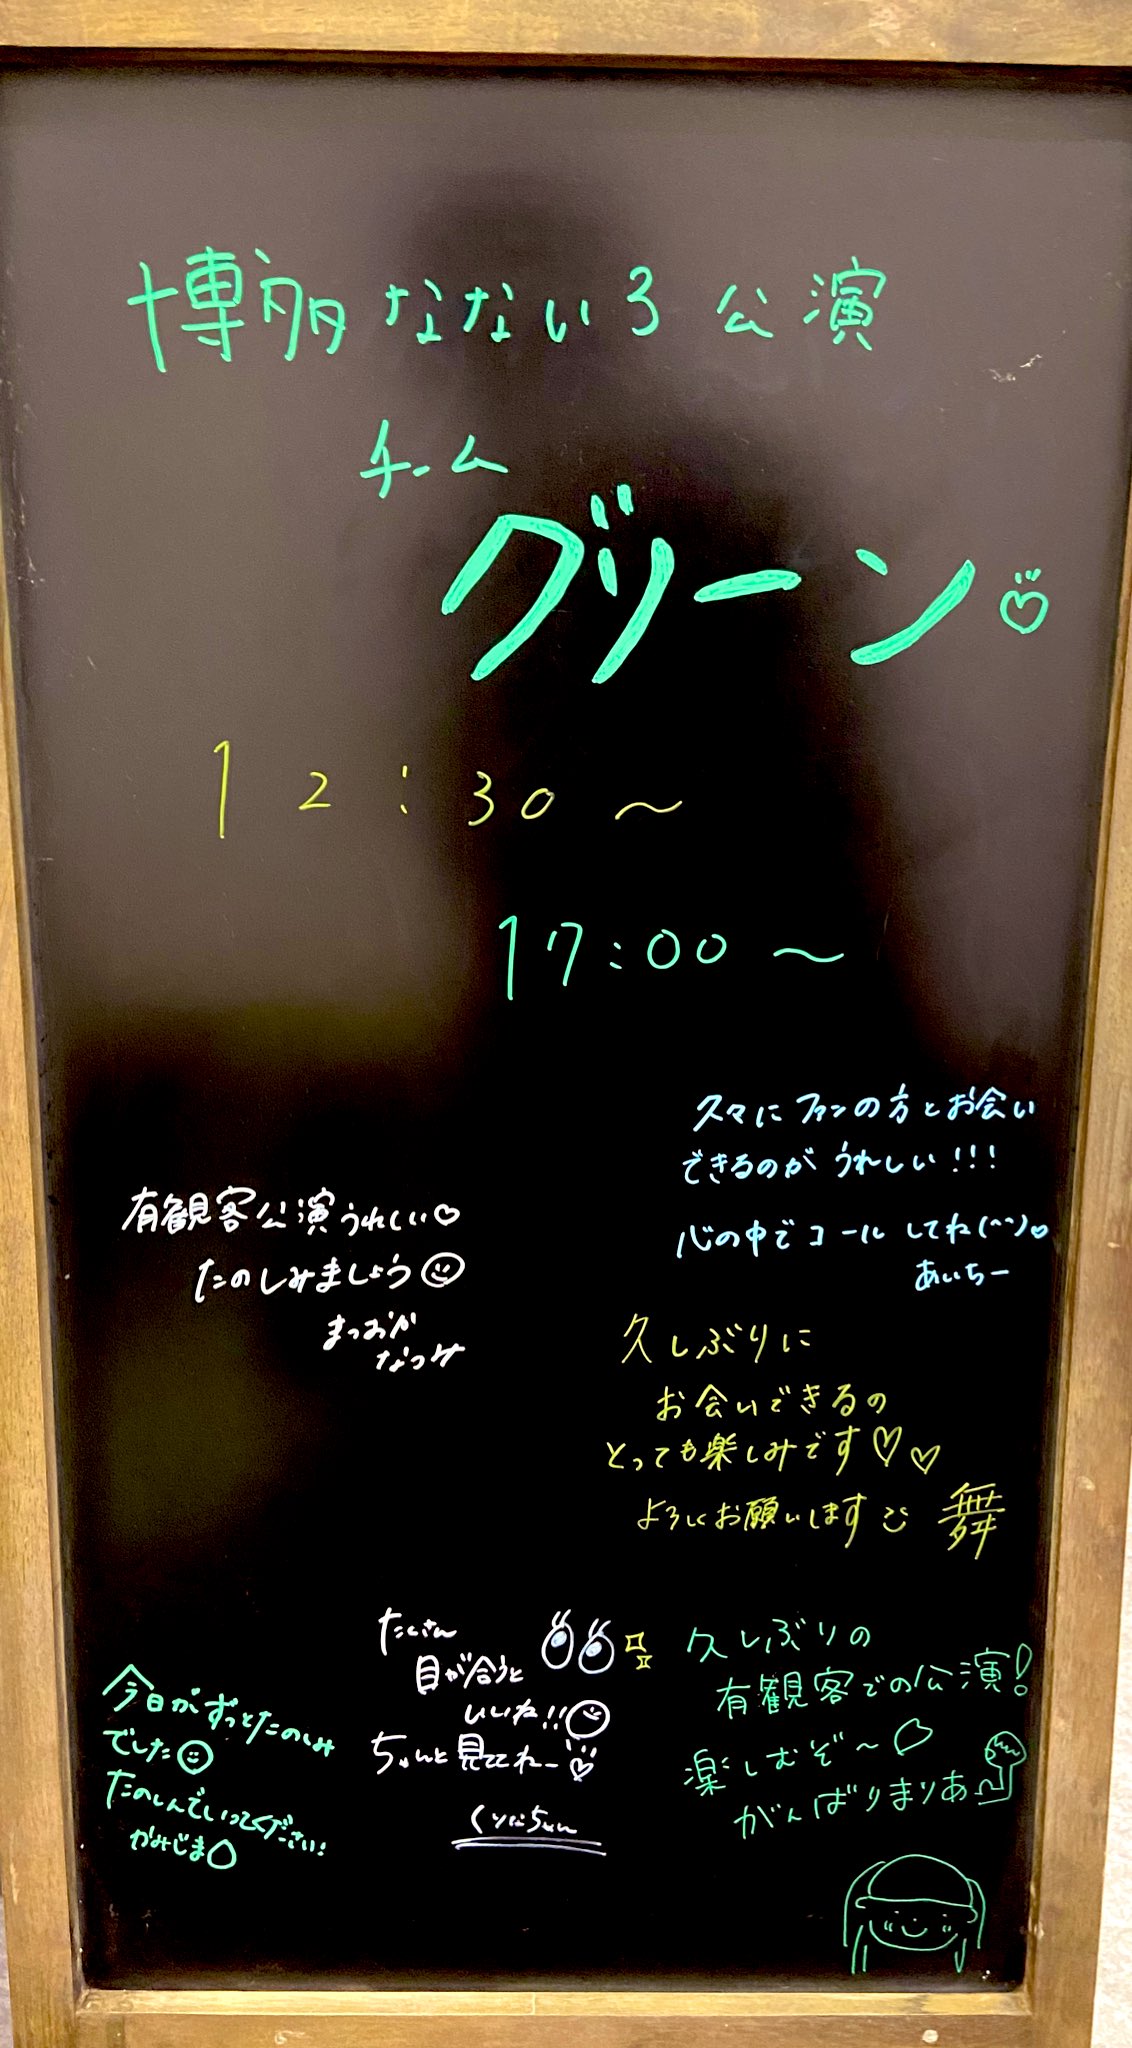 博多なないろ公演
チーム
グリーン
12:30〜
17:00〜
久々にファンの方とお会い
できるのが うれしい!!!
心の中でコール してね(^^)
あいちー
有観客公演うれしい♡
たのしみましょう
まつおか
なつみ
久しぶりに
お会いできるの
とっても楽しみです♡♡
よろしくお願いします 舞
たくさん
目が合うと
いいね!!
ちゃんと見ててねー
くりんちゃん
久しぶりの
有観客での公演!
楽しむぞ〜
がんばりまりあ
今日がずっとたのしみ
でした
たのしんでいってください!
かみじま